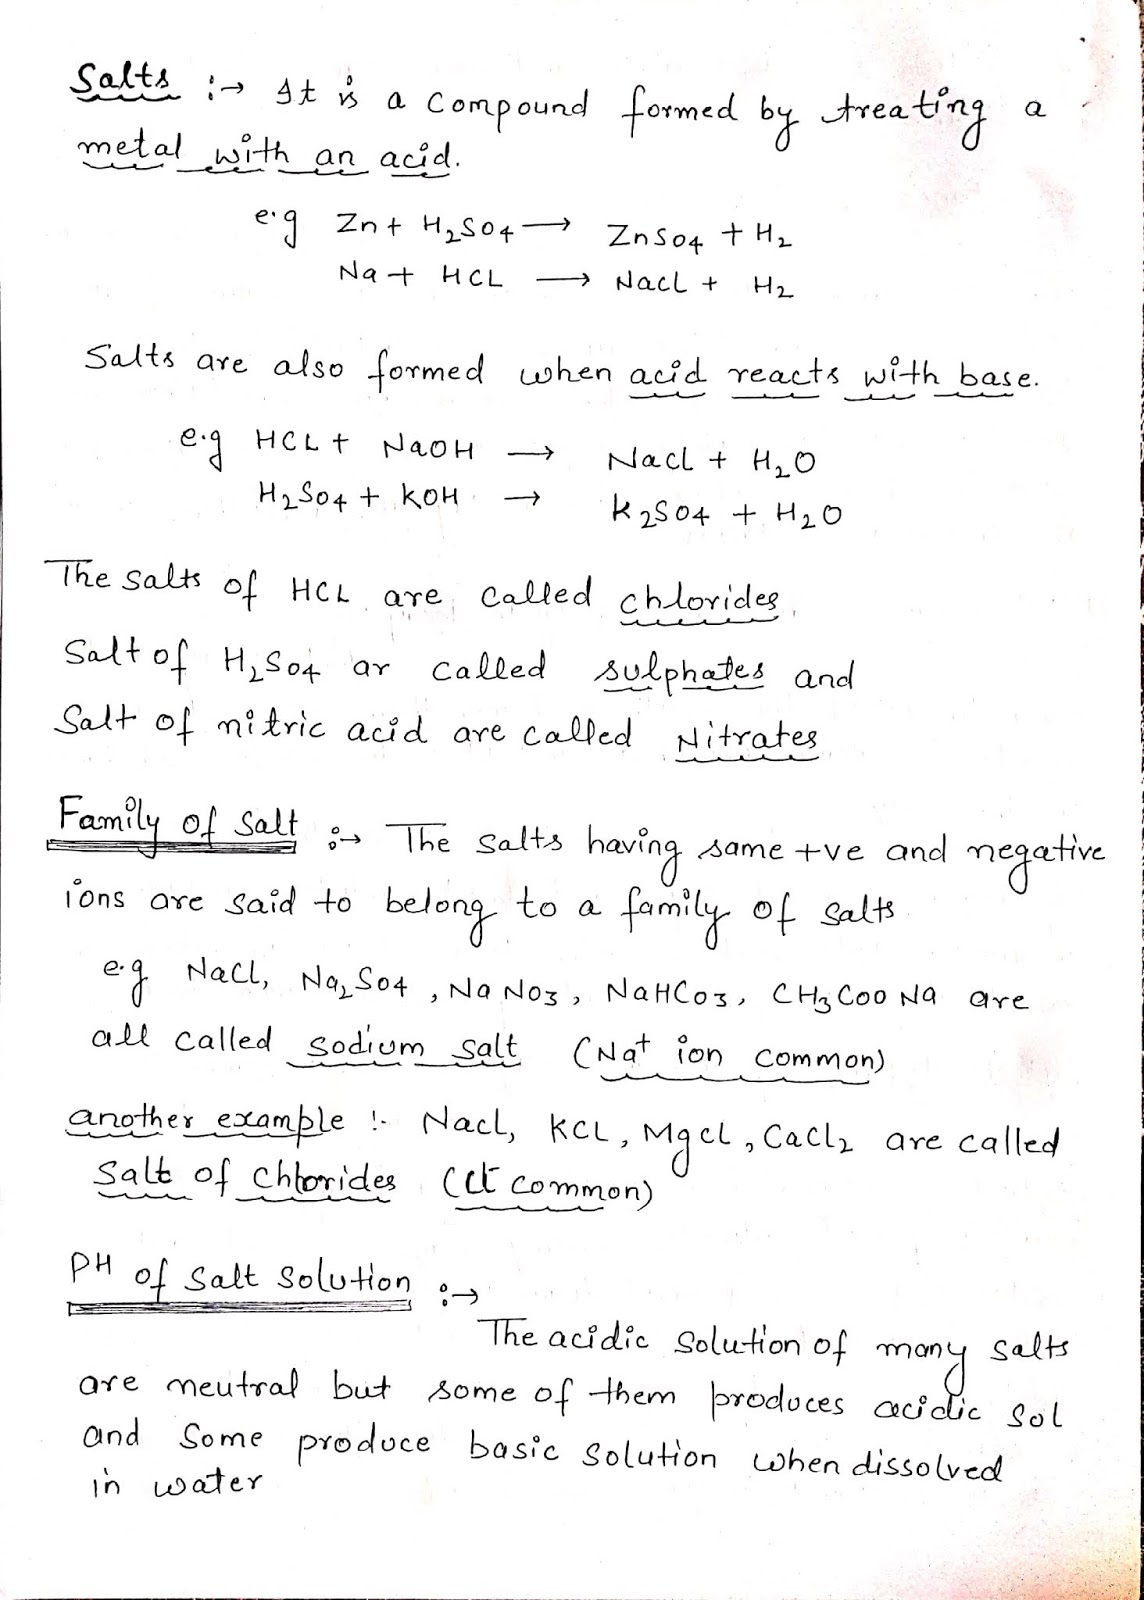 Salts :→ It is a compound formed by treating a
metal with an acid.
e.g Zn + H₂SO₄ → ZnSO₄ + H₂
Na + HCL → Nacl + H₂
Salts are also formed when acid reacts with base.
e.g HCL + NaOH → Nacl + H₂O
H₂SO₄ + KOH → K₂SO₄ + H₂O
The salts of HCL are called chlorides.
Salt of H₂SO₄ ar called sulphates and
Salt of nitric acid are called Nitrates
Family of Salt :→ The salts having same +ve and negative
ions are said to belong to a family of salts
e.g NaCl, Na₂SO₄, NaNO₃, NaHCO₃, CH₃COONa are
all called sodium salt (Na⁺ ion common)
another example :- Nacl, KCL, Mgcl, CaCl₂ are called
Salt of Chlorides (Cl⁻ common)
PH of Salt Solution :→
The acidic solution of many salts
are neutral but some of them produces acidic sol
and Some produce basic solution when dissolved
in water